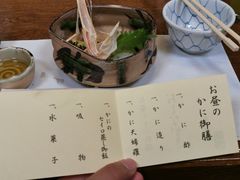 お昼の
かに御膳
一、かに酢
一、かに造り
一、かに天婦羅
一、かにの
セイロ蒸し御飯
一、吸物
一、水菓子